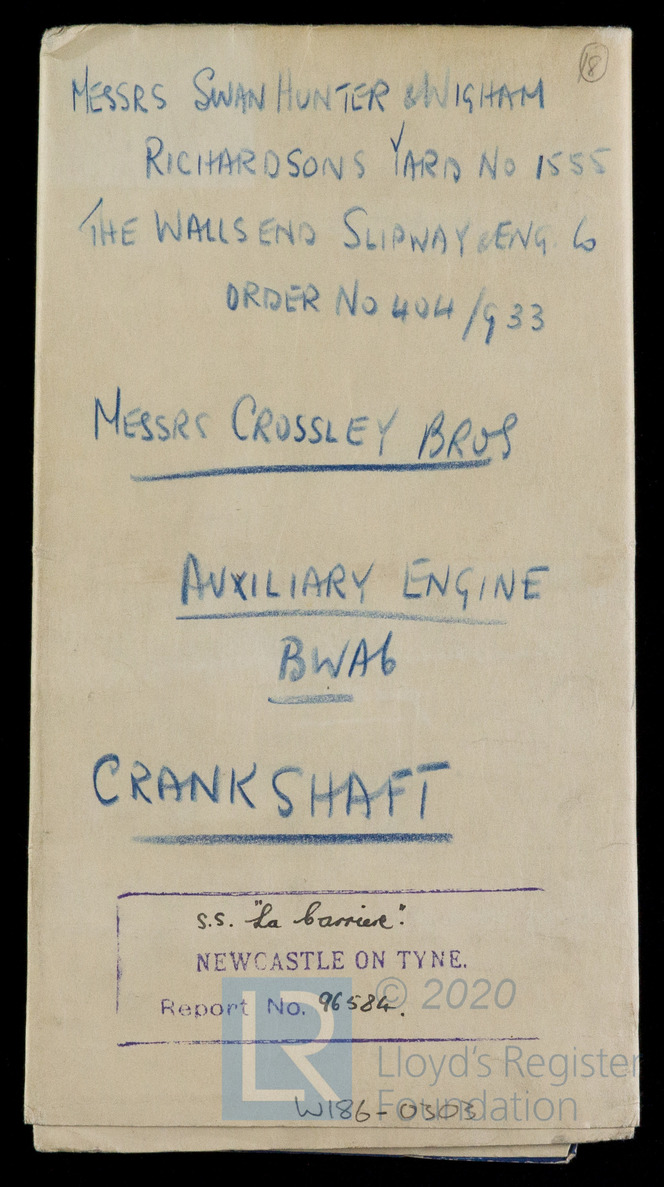 18
MESSRS SWAN HUNTER & WIGHAM
RICHARDSONS YARD NO 1555
THE WALLSEND SLIPWAY & ENG. Co
ORDER NO 404/G33
MESSRS CROSSLEY BROS
AUXILIARY ENGINE
BWA6
CRANKSHAFT
S.S. "La Carriere".
NEWCASTLE ON TYNE.
Report No. 96584.
© 2020
LR
Lloyd's Register
Foundation
W186-0303